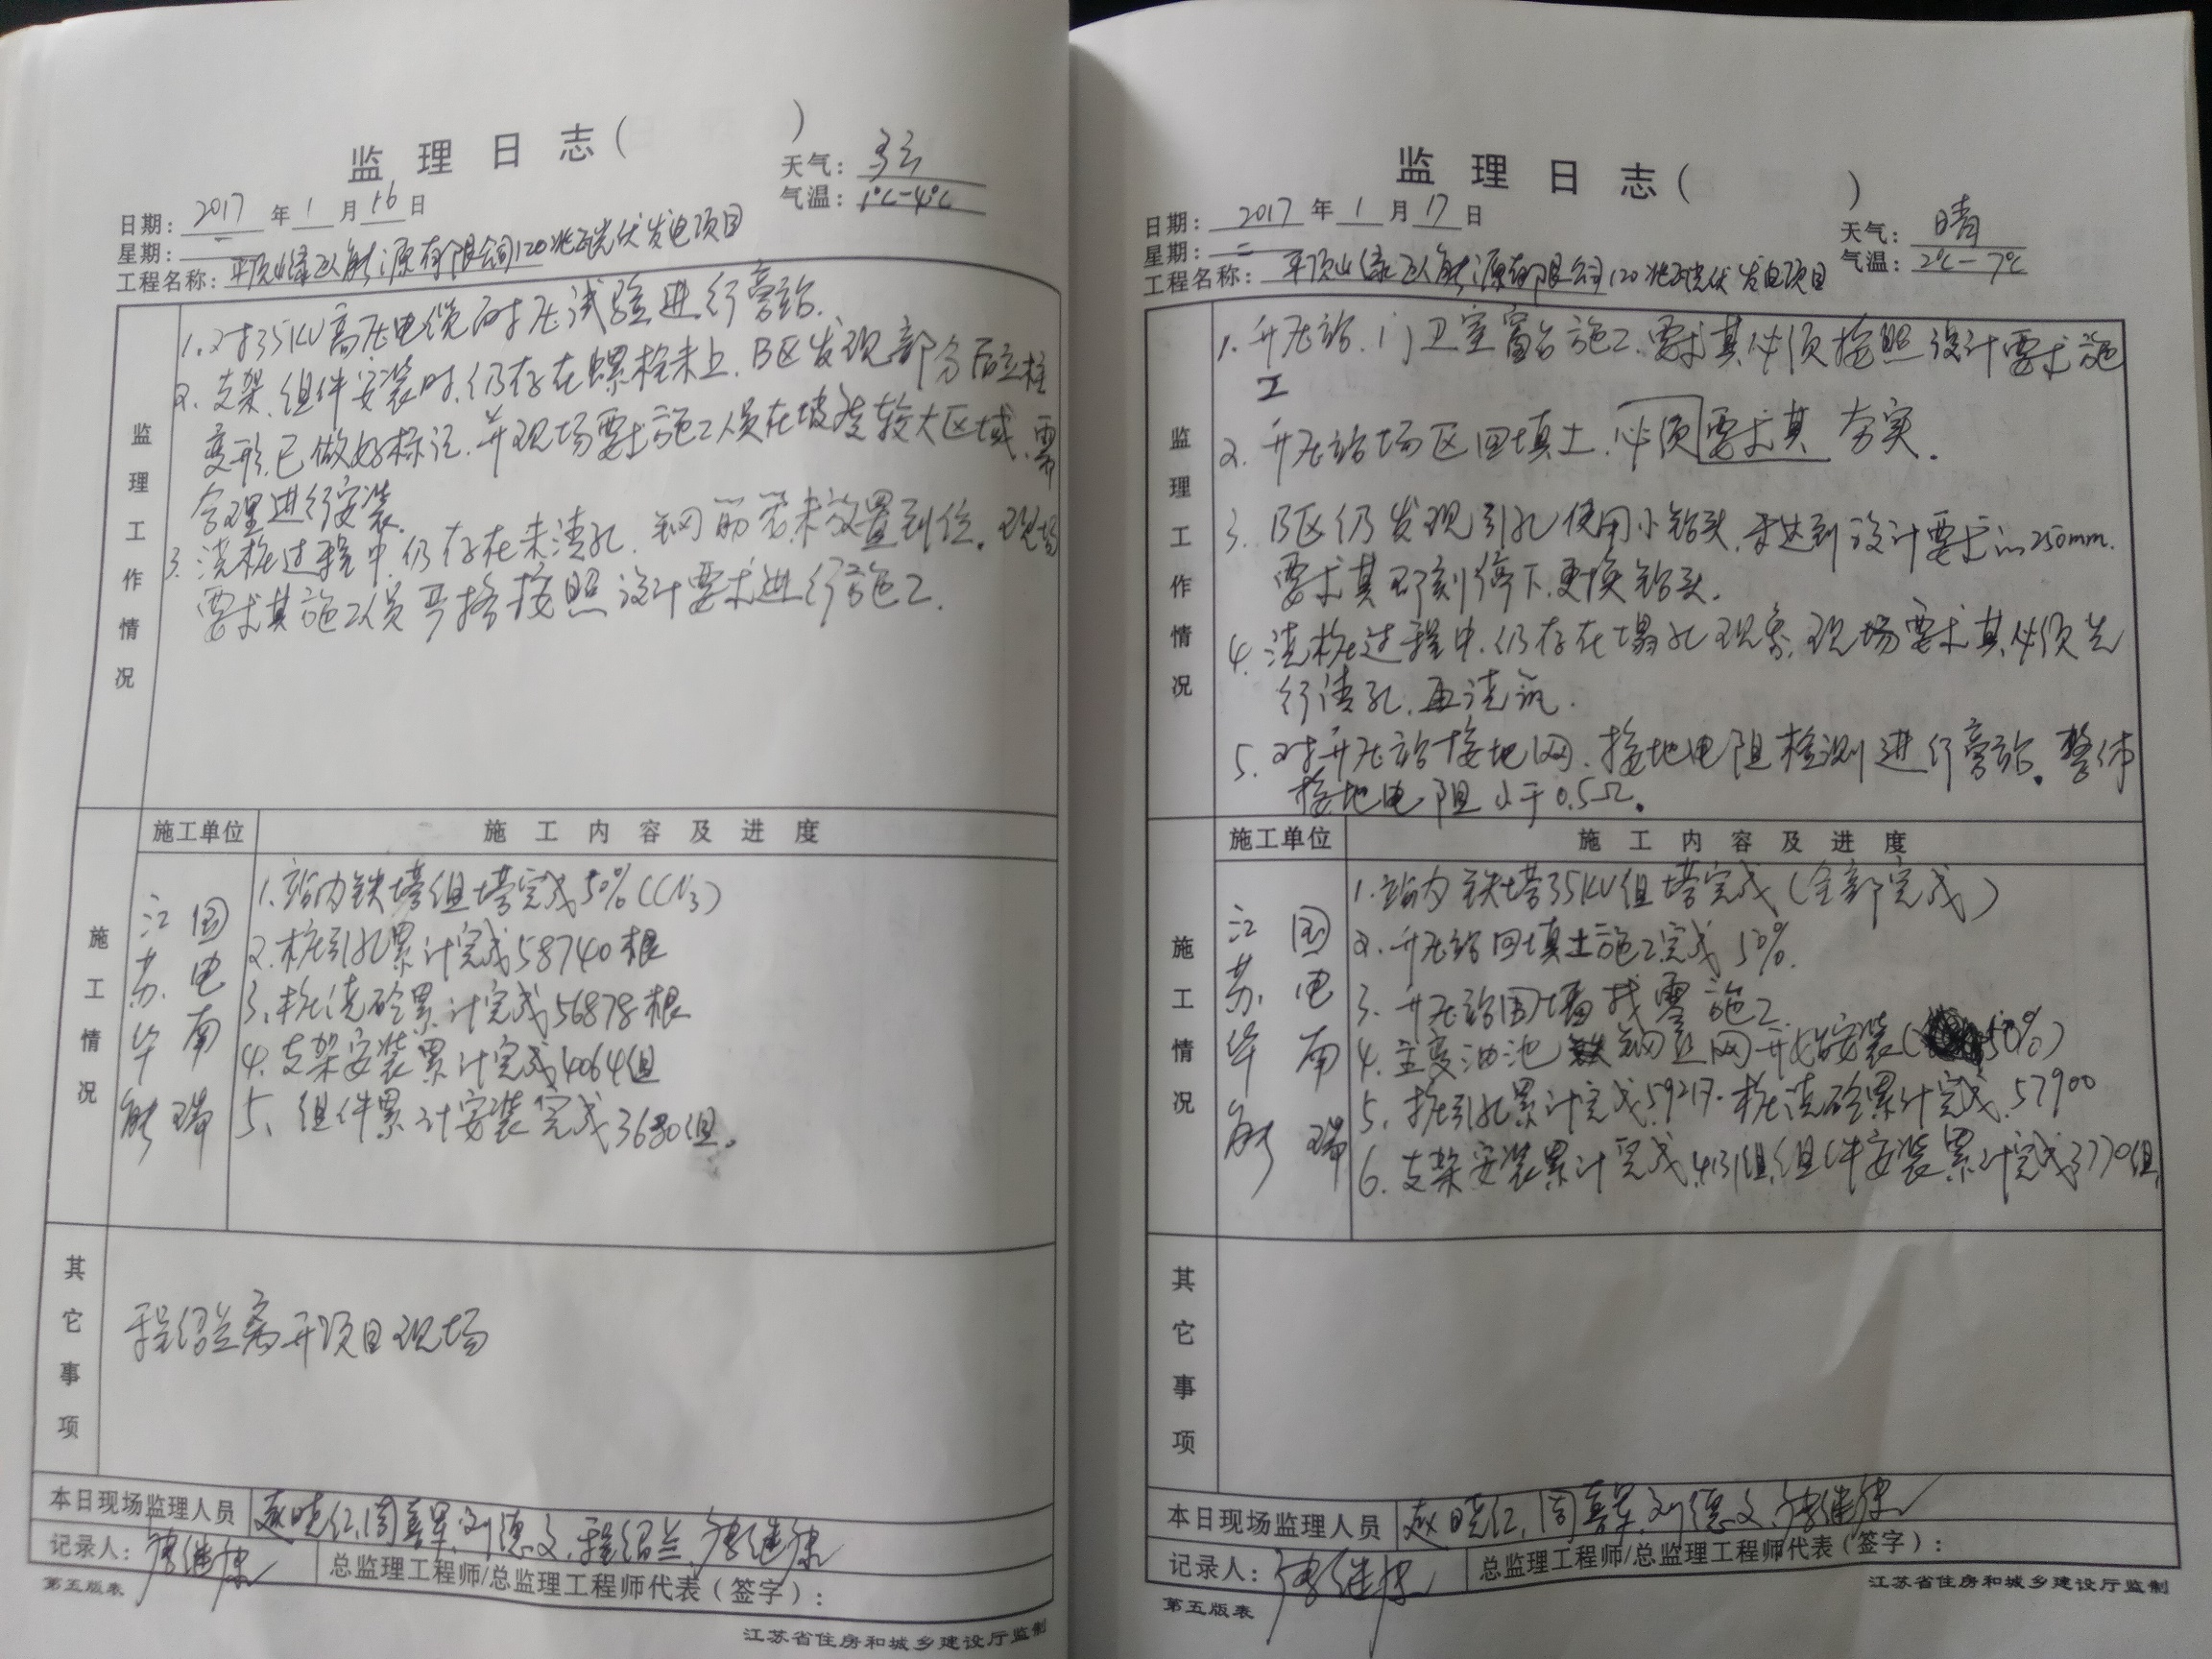 监理日志( )
日期: 2017 年 1 月 16 日
天气: 多云
星期: 一
气温: 1℃-4℃
工程名称: 平顶山绿 能源有限公司120兆瓦光伏发电项目
监理工作情况
1. 对35KV高压电缆耐压试验进行旁站.
2. 支架、组件安装时,仍存在螺栓未上,B区发现部分后立柱
变形,已做好标记,并现场要求施工人员在坡度较大区域,需
合理进行安装.
3. 浇桩过程中,仍存在未清孔,钢筋笼未放置到位。现场
要求其施工人员严格按照设计要求进行施工.
施工情况
施工单位
施工内容及进度
江苏华能
国电南瑞
1.站内铁塔组塔完成50%(CN3)
2.桩引孔累计完成58740根
3.桩浇砼累计完成56878根
4.支架安装累计完成4064组
5、组件累计安装完成3680组。
其它事项
程绍兰离开项目现场
本日现场监理人员 赵晓仁,周喜军,刘德文,程绍兰,唐继康
记录人: 唐继康
总监理工程师/总监理工程师代表(签字):
第五版表
江苏省住房和城乡建设厅监制
监理日志( )
日期: 2017 年 1 月 17 日
天气: 晴
星期: 二
气温: 2℃-7℃
工程名称: 平顶山绿 能源有限公司120兆瓦光伏发电项目
监理工作情况
1. 升压站、门卫室窗台施工,要求其必须按照设计要求施
工
2. 升压站场区回填土,必须要求其夯实.
3. B区仍发现引孔使用小钻头,未达到设计要求的250mm.
要求其即刻停下,更换钻头.
4. 浇桩过程中,仍存在塌孔现象,现场要求其必须先
行清孔,再浇筑.
5. 对升压站接地网,接地电阻检测进行旁站。整体
接地电阻小于0.5Ω。
施工情况
施工单位
施工内容及进度
江苏华能
国电南瑞
1.站内铁塔35KV组塔完成(全部完成)
2.升压站回填土施工完成50%.
3.升压站围墙找零施工
4.主变油池钢丝网开始安装(50%)
5.桩引孔累计完成59217.桩浇砼累计完成57900
6.支架安装累计完成4131组,组件安装累计完成3770组,
其它事项
本日现场监理人员 赵晓仁,周喜军,刘德文,唐继康
记录人: 唐继康
总监理工程师/总监理工程师代表(签字):
第五版表
江苏省住房和城乡建设厅监制